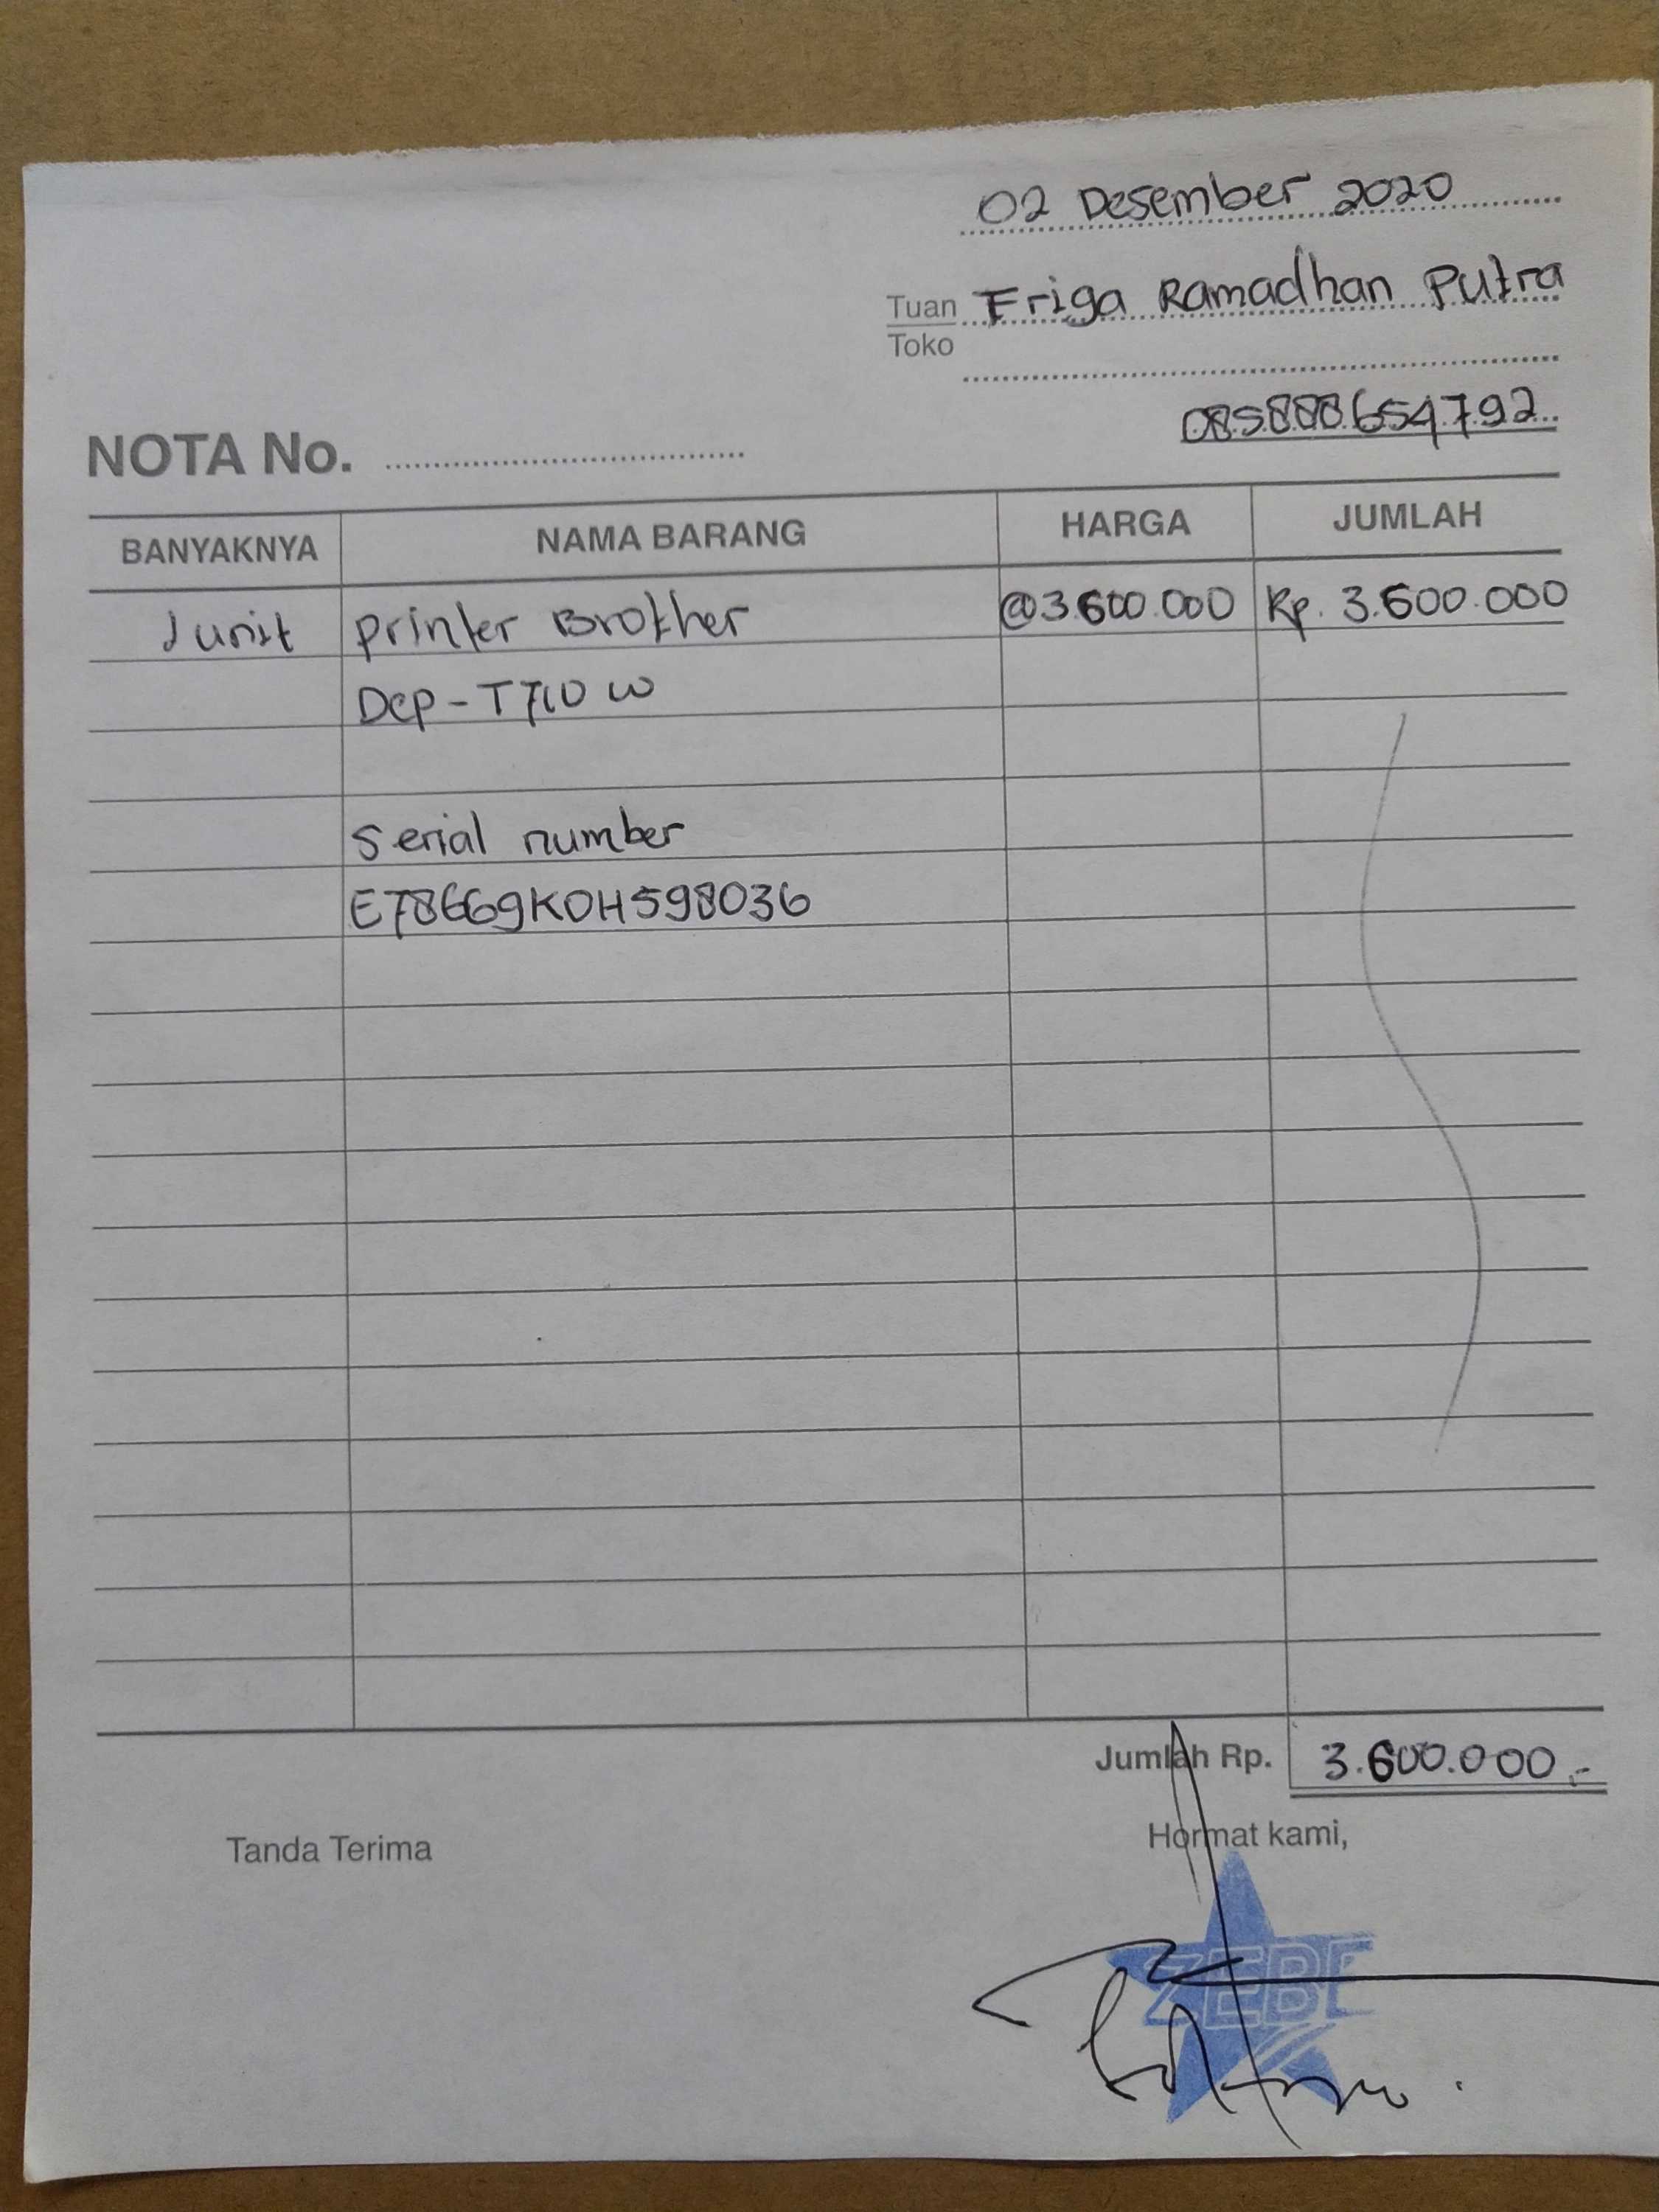 02 Desember 2020
Tuan Friga Ramadhan Putra
Toko
085888654792
NOTA No.
BANYAKNYA NAMA BARANG HARGA JUMLAH
1 unit Printer Brother @3.600.000 Rp. 3.600.000
Dcp-T710 W
Serial number
E78669K0H598036
Jumlah Rp. 3.600.000,-
Tanda Terima Hormat kami,
ZEBE